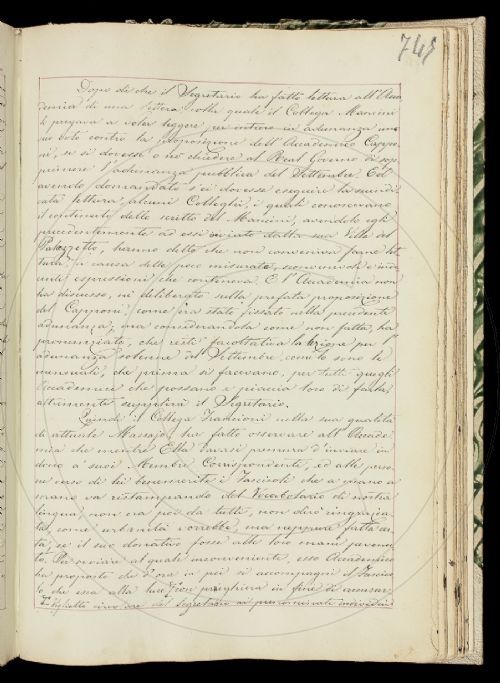 745
Dopo di che il Segretario ha fatto lettura all'Acca-
demica di una lettera colla quale il Collega Mancini
lo pregava a voler leggere per intiero in adunanza uno
suo voto contro la proposizione dell'Accademico Cappo-
ni, se si dovesse o nò chiedere al Real Governo di sop-
primere l'adunanza pubblica del Settembre. Ed
avendo domandato s'ei dovesse eseguire la suindi-
cata lettura, alcuni Colleghi, i quali conoscevano
il contenuto dello scritto del Mancini, avendolo egli
precedentemente ad essi inviato dalla sua Villa del
Palazzetto, hanno detto che non conveniva farne let-
tura, a causa delle poco misurate, sconvenevoli e
espressioni che conteneva. E l'Accademia non
ha discusso, nè deliberato sulla prefata proposizione
del Capponi, come era stato fissato nella precedente
adunanza; ma considerandola come non fatta, ha
pronunziato, che resti facoltativa la lezione per l'
adunanza solenne del Settembre, come lo sono le
mensuali, che prima si facevano, per tutti quegli
Accademici che possano e piaccia loro di farla,
altrimenti supplirà il Segretario.
Quindi il Collega Franscioni nella sua qualità
di attuale Massajo, ha fatto osservare all'Accade-
mia che mentre Ella davasi premura d'inviare in
dono a suoi Membri Corrispondenti, ed alle perso-
ne verso di lei benemerite i Fascicoli che a mano a
mano va ristampando del Vocabolario di nostra
lingua, non era poi da tutti, non dirò ringrazia-
ta, come urbanità vorrebbe, ma neppure fatta cer-
ta, se il suo donativo fosse alle loro mani pervenu-
to. Per ovviare al quale inconveniente, esso Accademico
ha proposto che d'ora in poi si accompagni il Fascico-
lo che essa alla luce con preghiera in fine di accusar-
biglietto circolare del Segretario ai prenominati individui